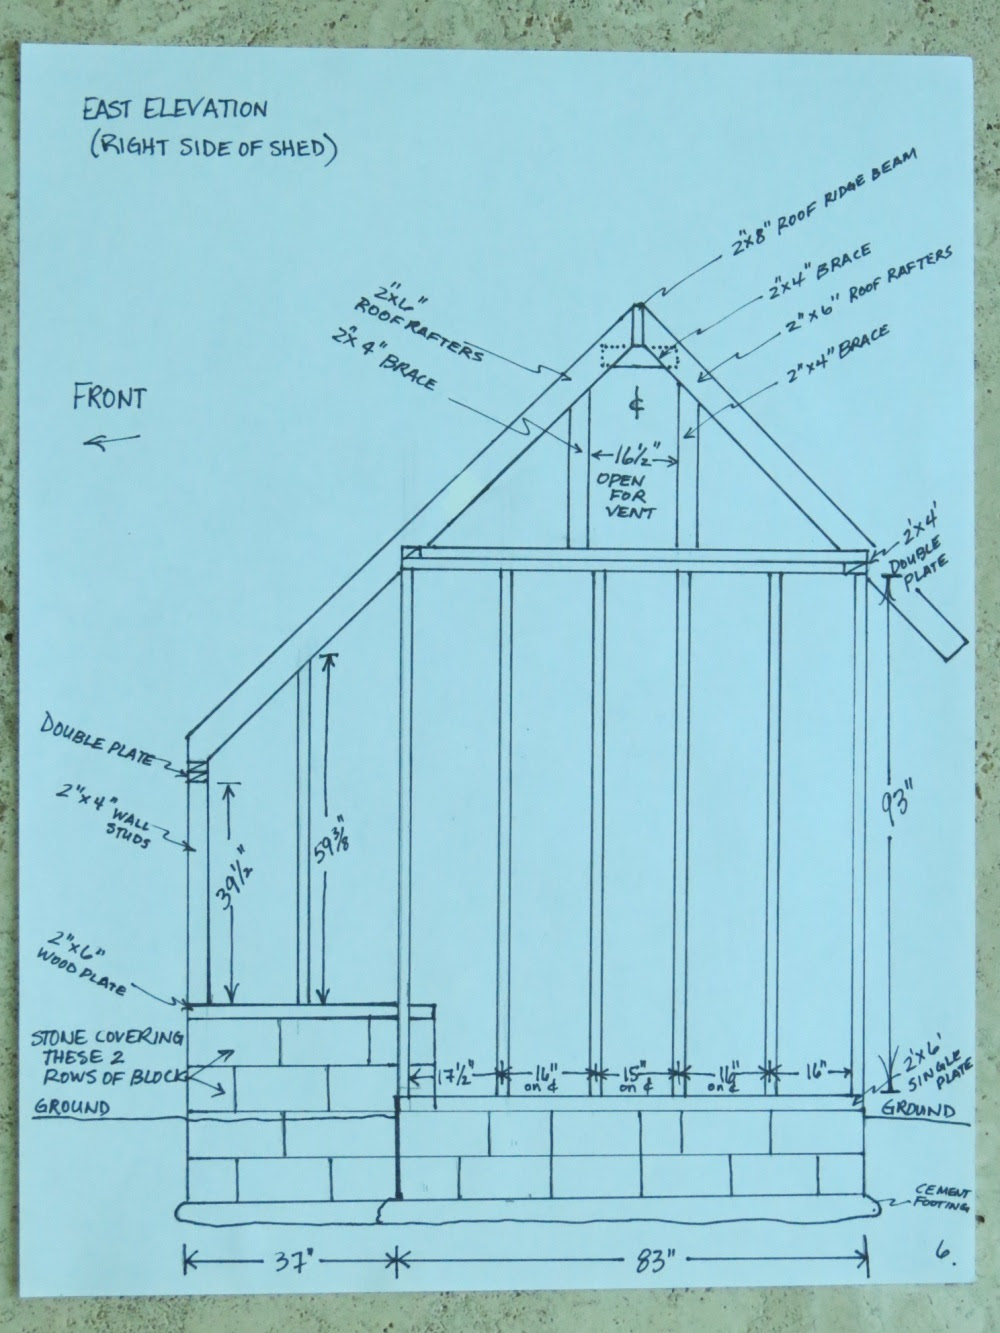 EAST ELEVATION
(RIGHT SIDE OF SHED)
2"x8" ROOF RIDGE BEAM
2"x4" BRACE
2"x6" ROOF RAFTERS
2"x4" BRACE
2"x6"
ROOF RAFTERS
2"x4" BRACE
FRONT
℄
16½"
OPEN
FOR
VENT
2'x4'
DOUBLE
PLATE
DOUBLE PLATE
2"x4" WALL
STUDS
39½"
59⅜"
93"
2"x6"
WOOD PLATE
STONE COVERING
THESE 2
ROWS OF BLOCK
GROUND
17½"
16"
on ℄
15"
on ℄
16"
on ℄
16"
2'x6'
SINGLE
PLATE
GROUND
CEMENT
FOOTING
37"
83"
6.